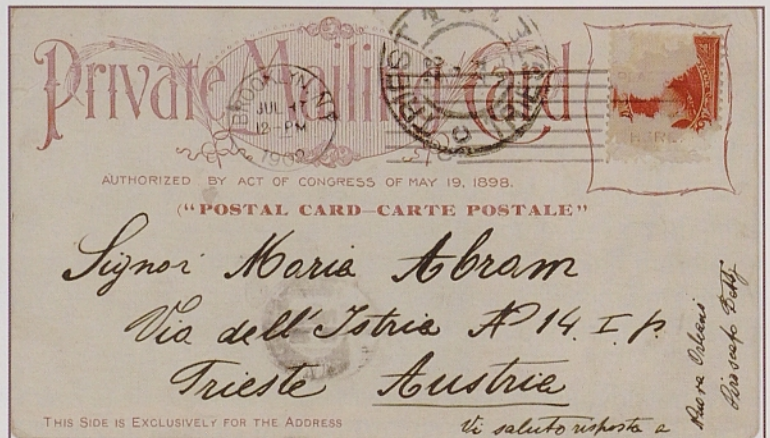 Private Mailing Card
BROOKLYN, N.Y.
JUL 17
12-PM
1902
TRIEST TRIESTE
HERE
AUTHORIZED BY ACT OF CONGRESS OF MAY 19, 1898.
("POSTAL CARD—CARTE POSTALE"
Signori Maria Abram
Via dell'Istria No 14. I. p.
Trieste Austria
THIS SIDE IS EXCLUSIVELY FOR THE ADDRESS
Vi saluto risposta a
Nuova Orleans
Piroscafo Betty